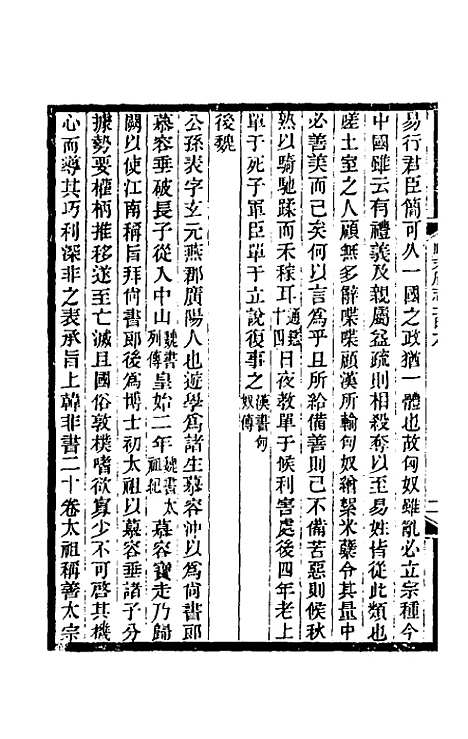 易行君臣簡可久一國之政猶一體也故匈奴雖亂必立宗種今
中國雖云有禮義及親屬益疏則相殺奪以至易姓皆從此類也
嗟土室之人顧無多辭喋喋顧漢所輸匈奴繒絮米糵令其量中
必善美而已矣何以言為乎且所給備善則已不備苦惡則候秋
熟以騎馳蹂而禾稼耳通鑑十四日夜教單于候利害處後四年老上
單于死子軍臣單于立說復事之漢書匈奴傳
後魏
公孫表字玄元燕郡廣陽人也遊學為諸生慕容沖以為尚書郎
慕容垂破長子從入中山魏書列傳皇始二年魏書太祖紀慕容寶走乃歸
闕以使江南稱旨拜尚書郎後為博士初太祖以慕容垂諸子分
據勢要權柄推移遂至亡滅且國俗敦樸嗜欲寡少不可啓其機
心而導其巧利深非之表承旨上韓非書二十卷太祖稱善太宗